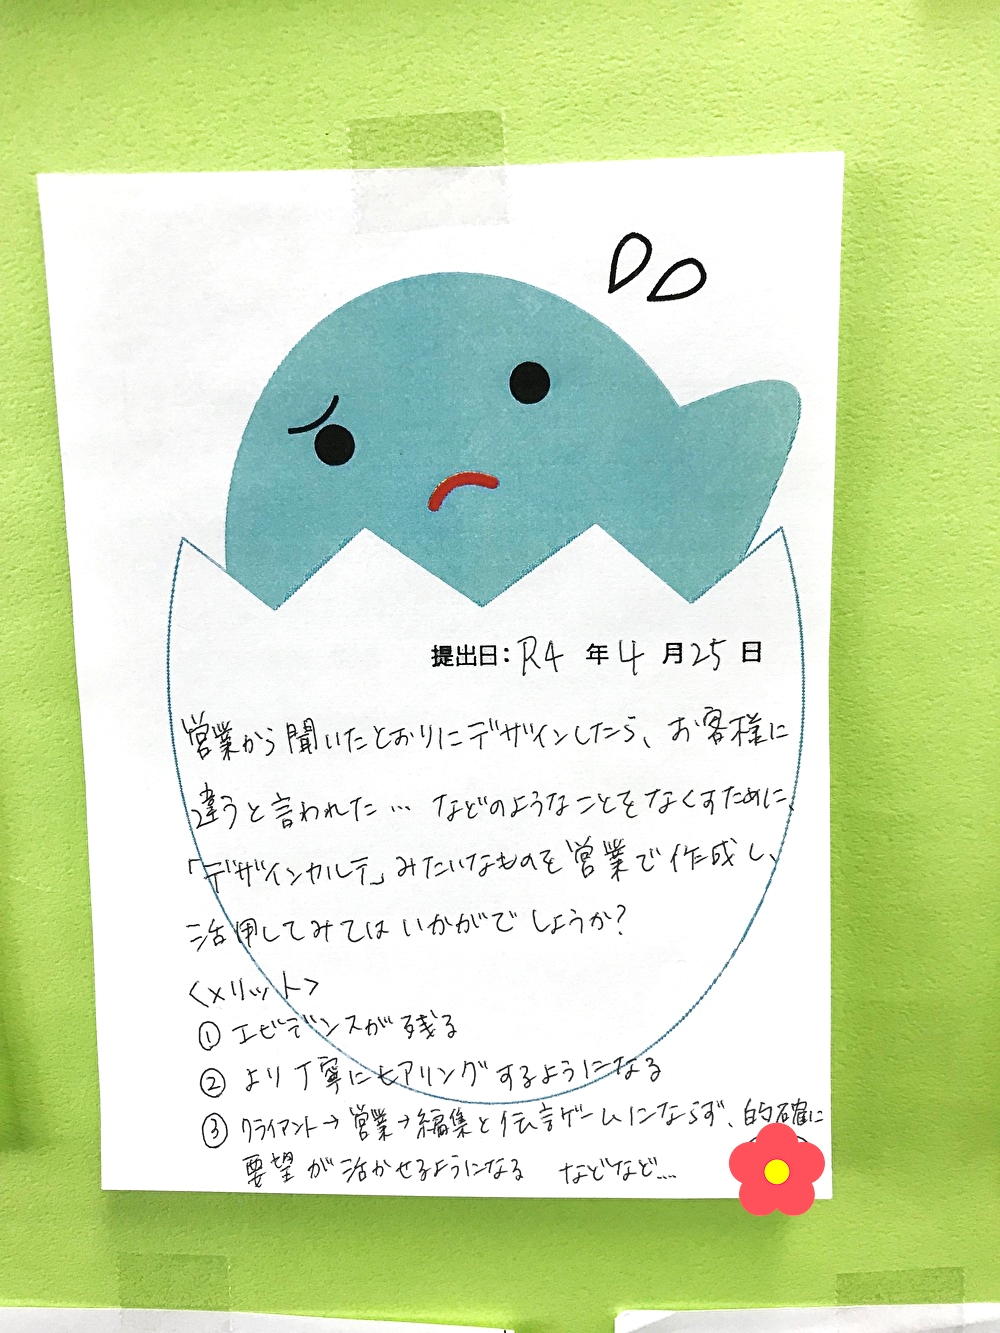 提出日: R4 年 4 月 25 日
営業から聞いたとおりにデザインしたら、お客様に
違うと言われた… などのようなことをなくすために、
「デザインカルテ」みたいなものを営業で作成し、
活用してみてはいかがでしょうか?
<メリット>
① エビデンスが残る
② より丁寧にヒアリングするようになる
③ クライアント→営業→編集と伝言ゲームにならず、的確に
要望が活かせるようになる などなど…